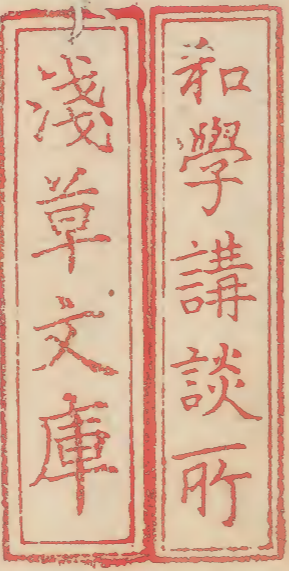 和學講談所
淺草文庫